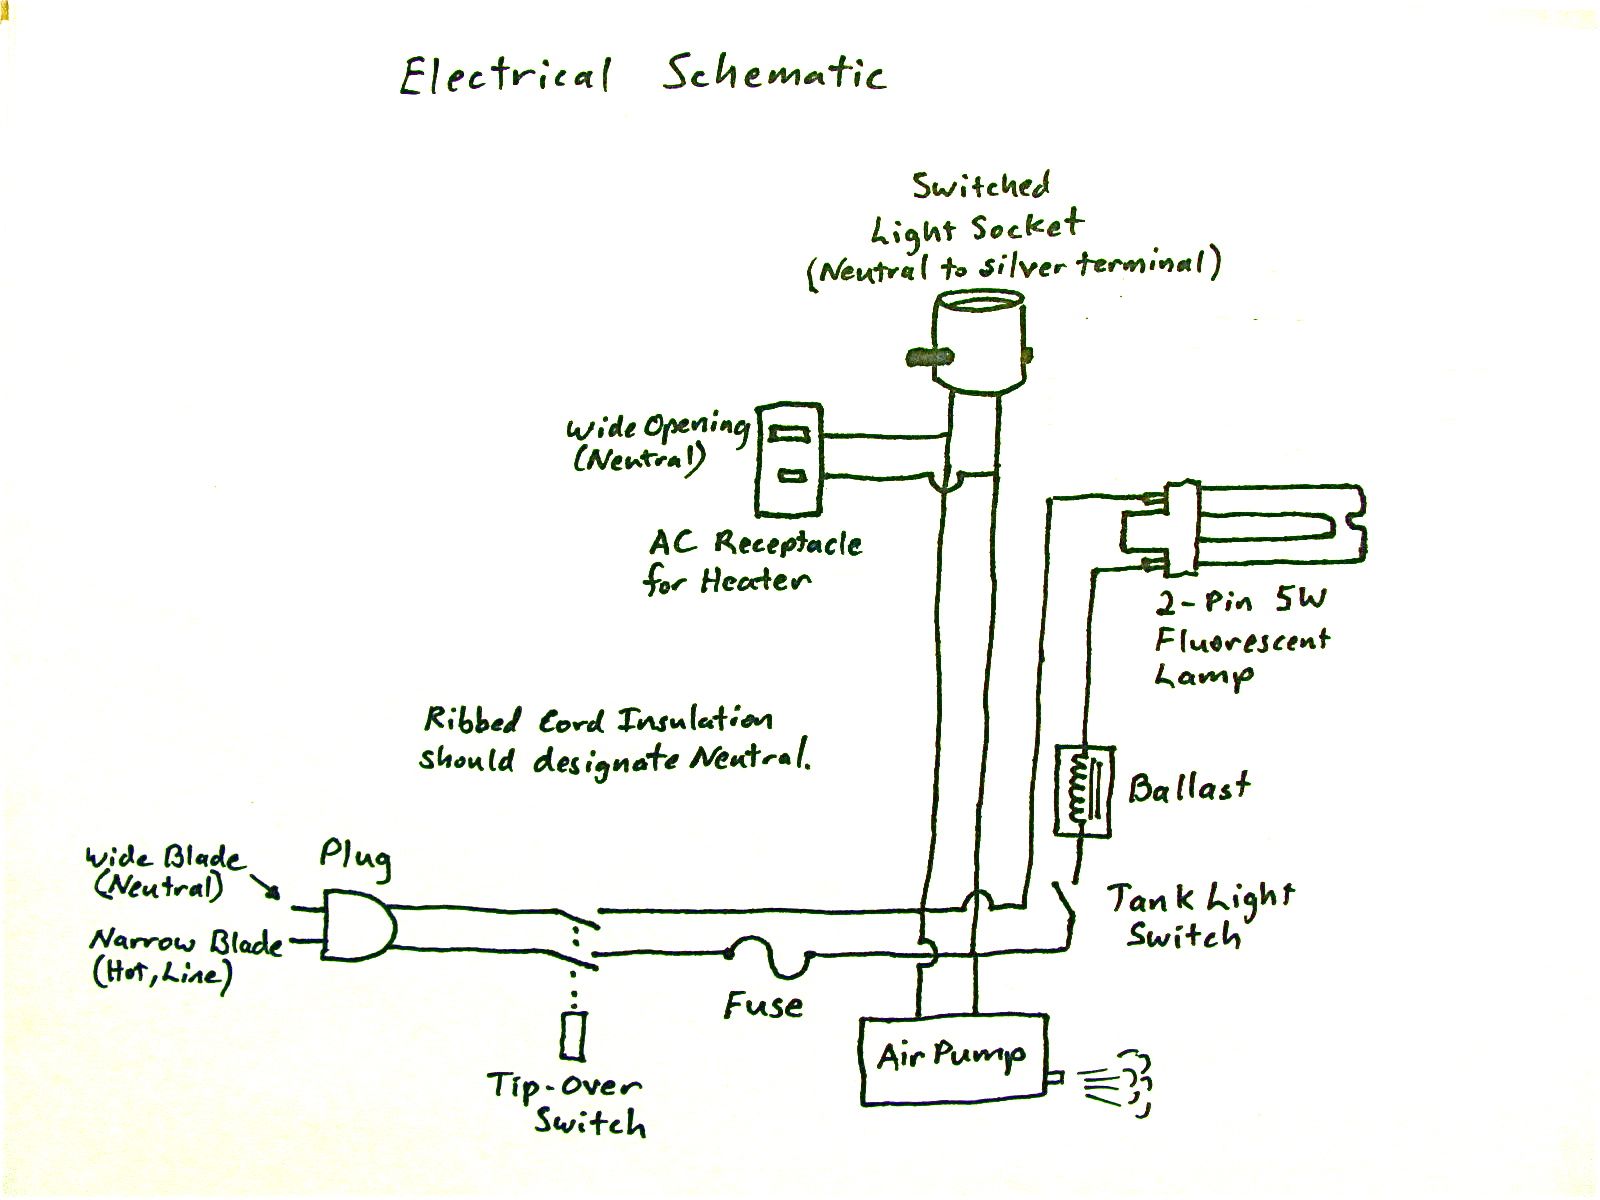 Electrical Schematic
Switched
Light Socket
(Neutral to silver terminal)
Wide Opening
(Neutral)
AC Receptacle
for Heater
2-Pin 5W
Fluorescent
Lamp
Ribbed Cord Insulation
should designate Neutral.
Ballast
Plug
Wide Blade
(Neutral)
Narrow Blade
(Hot, Line)
Tank Light
Switch
Fuse
Air Pump
Tip-Over
Switch